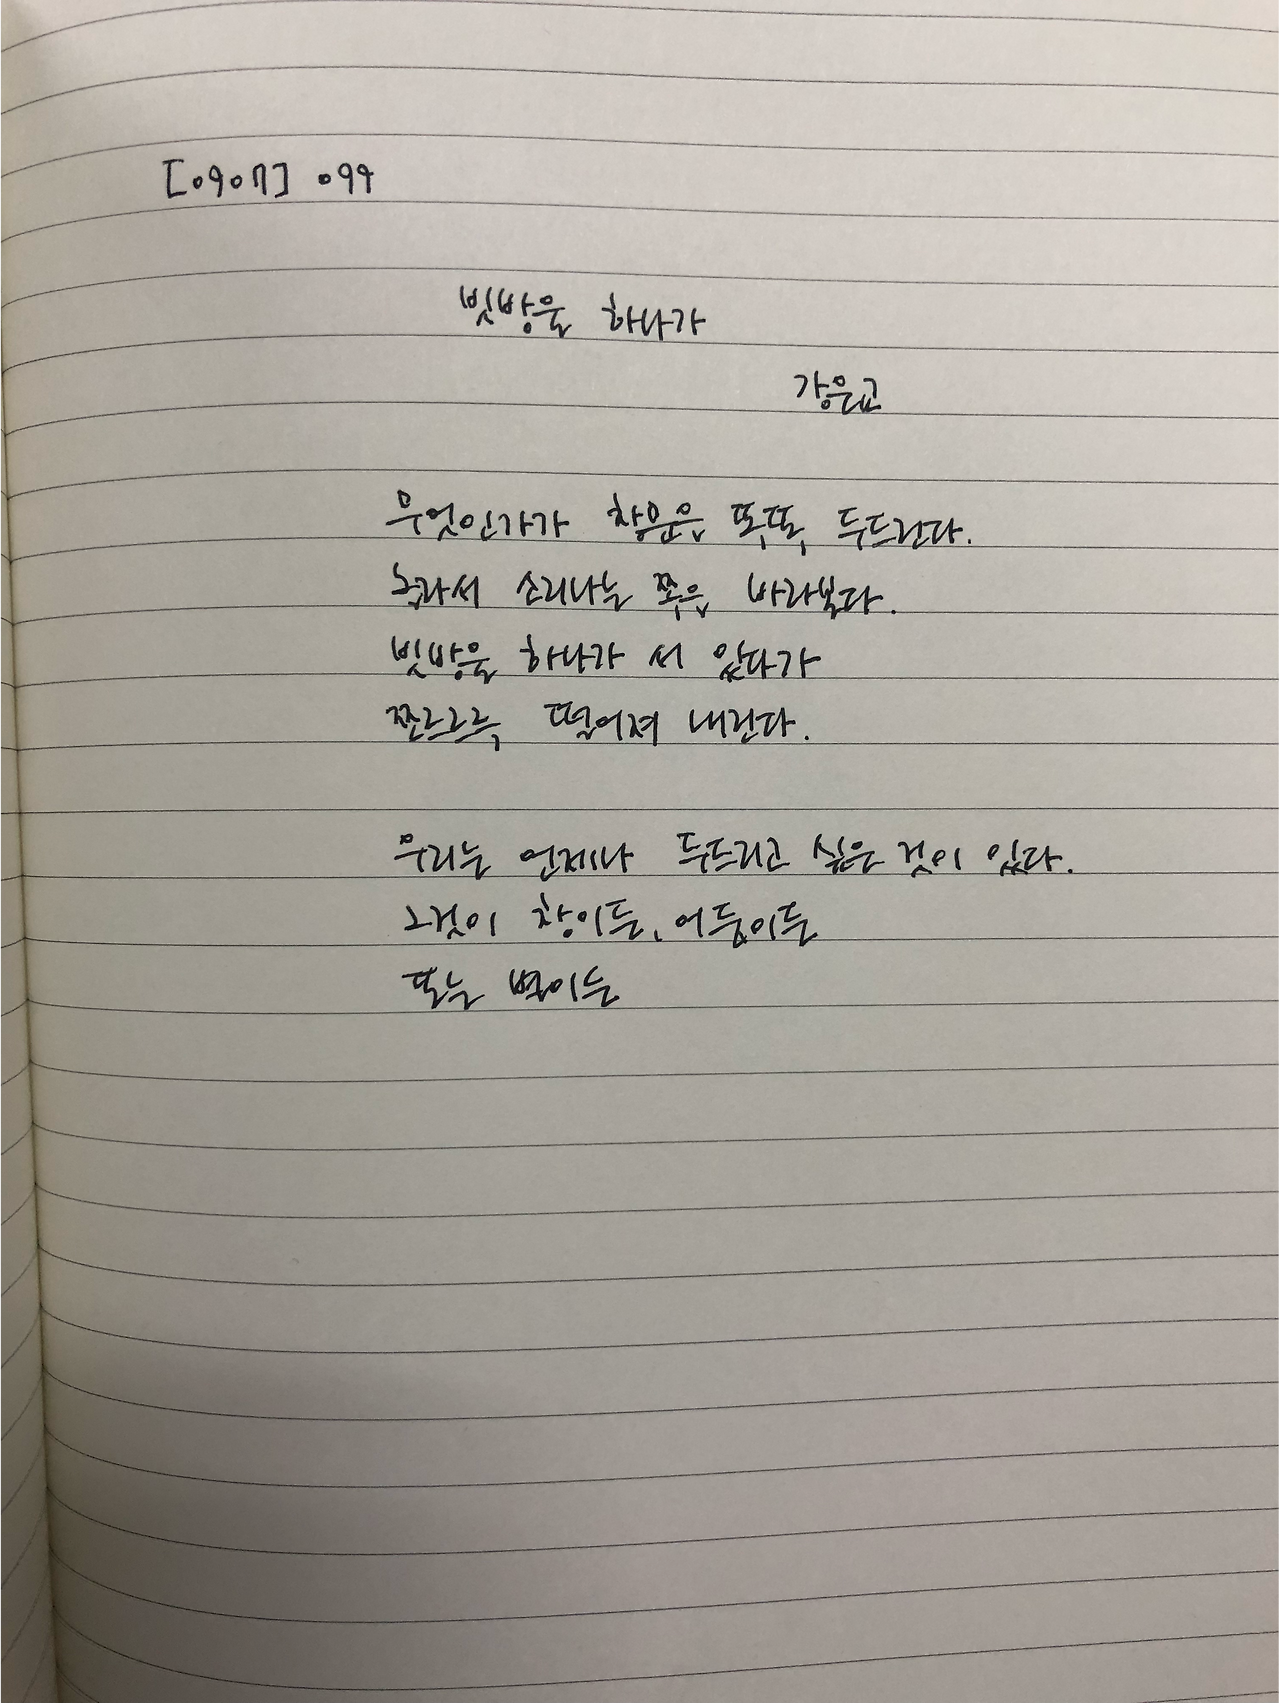 [0907] 099
빗방울 하나가
강은교
무엇인가가 창문을 똑똑 두드린다.
놀라서 소리나는 쪽을 바라본다.
빗방울 하나가 서 있다가
쪼르르륵 떨어져 내린다.
우리는 언제나 두드리고 싶은 것이 있다.
그것이 창이든, 어둠이든
또는 별이든